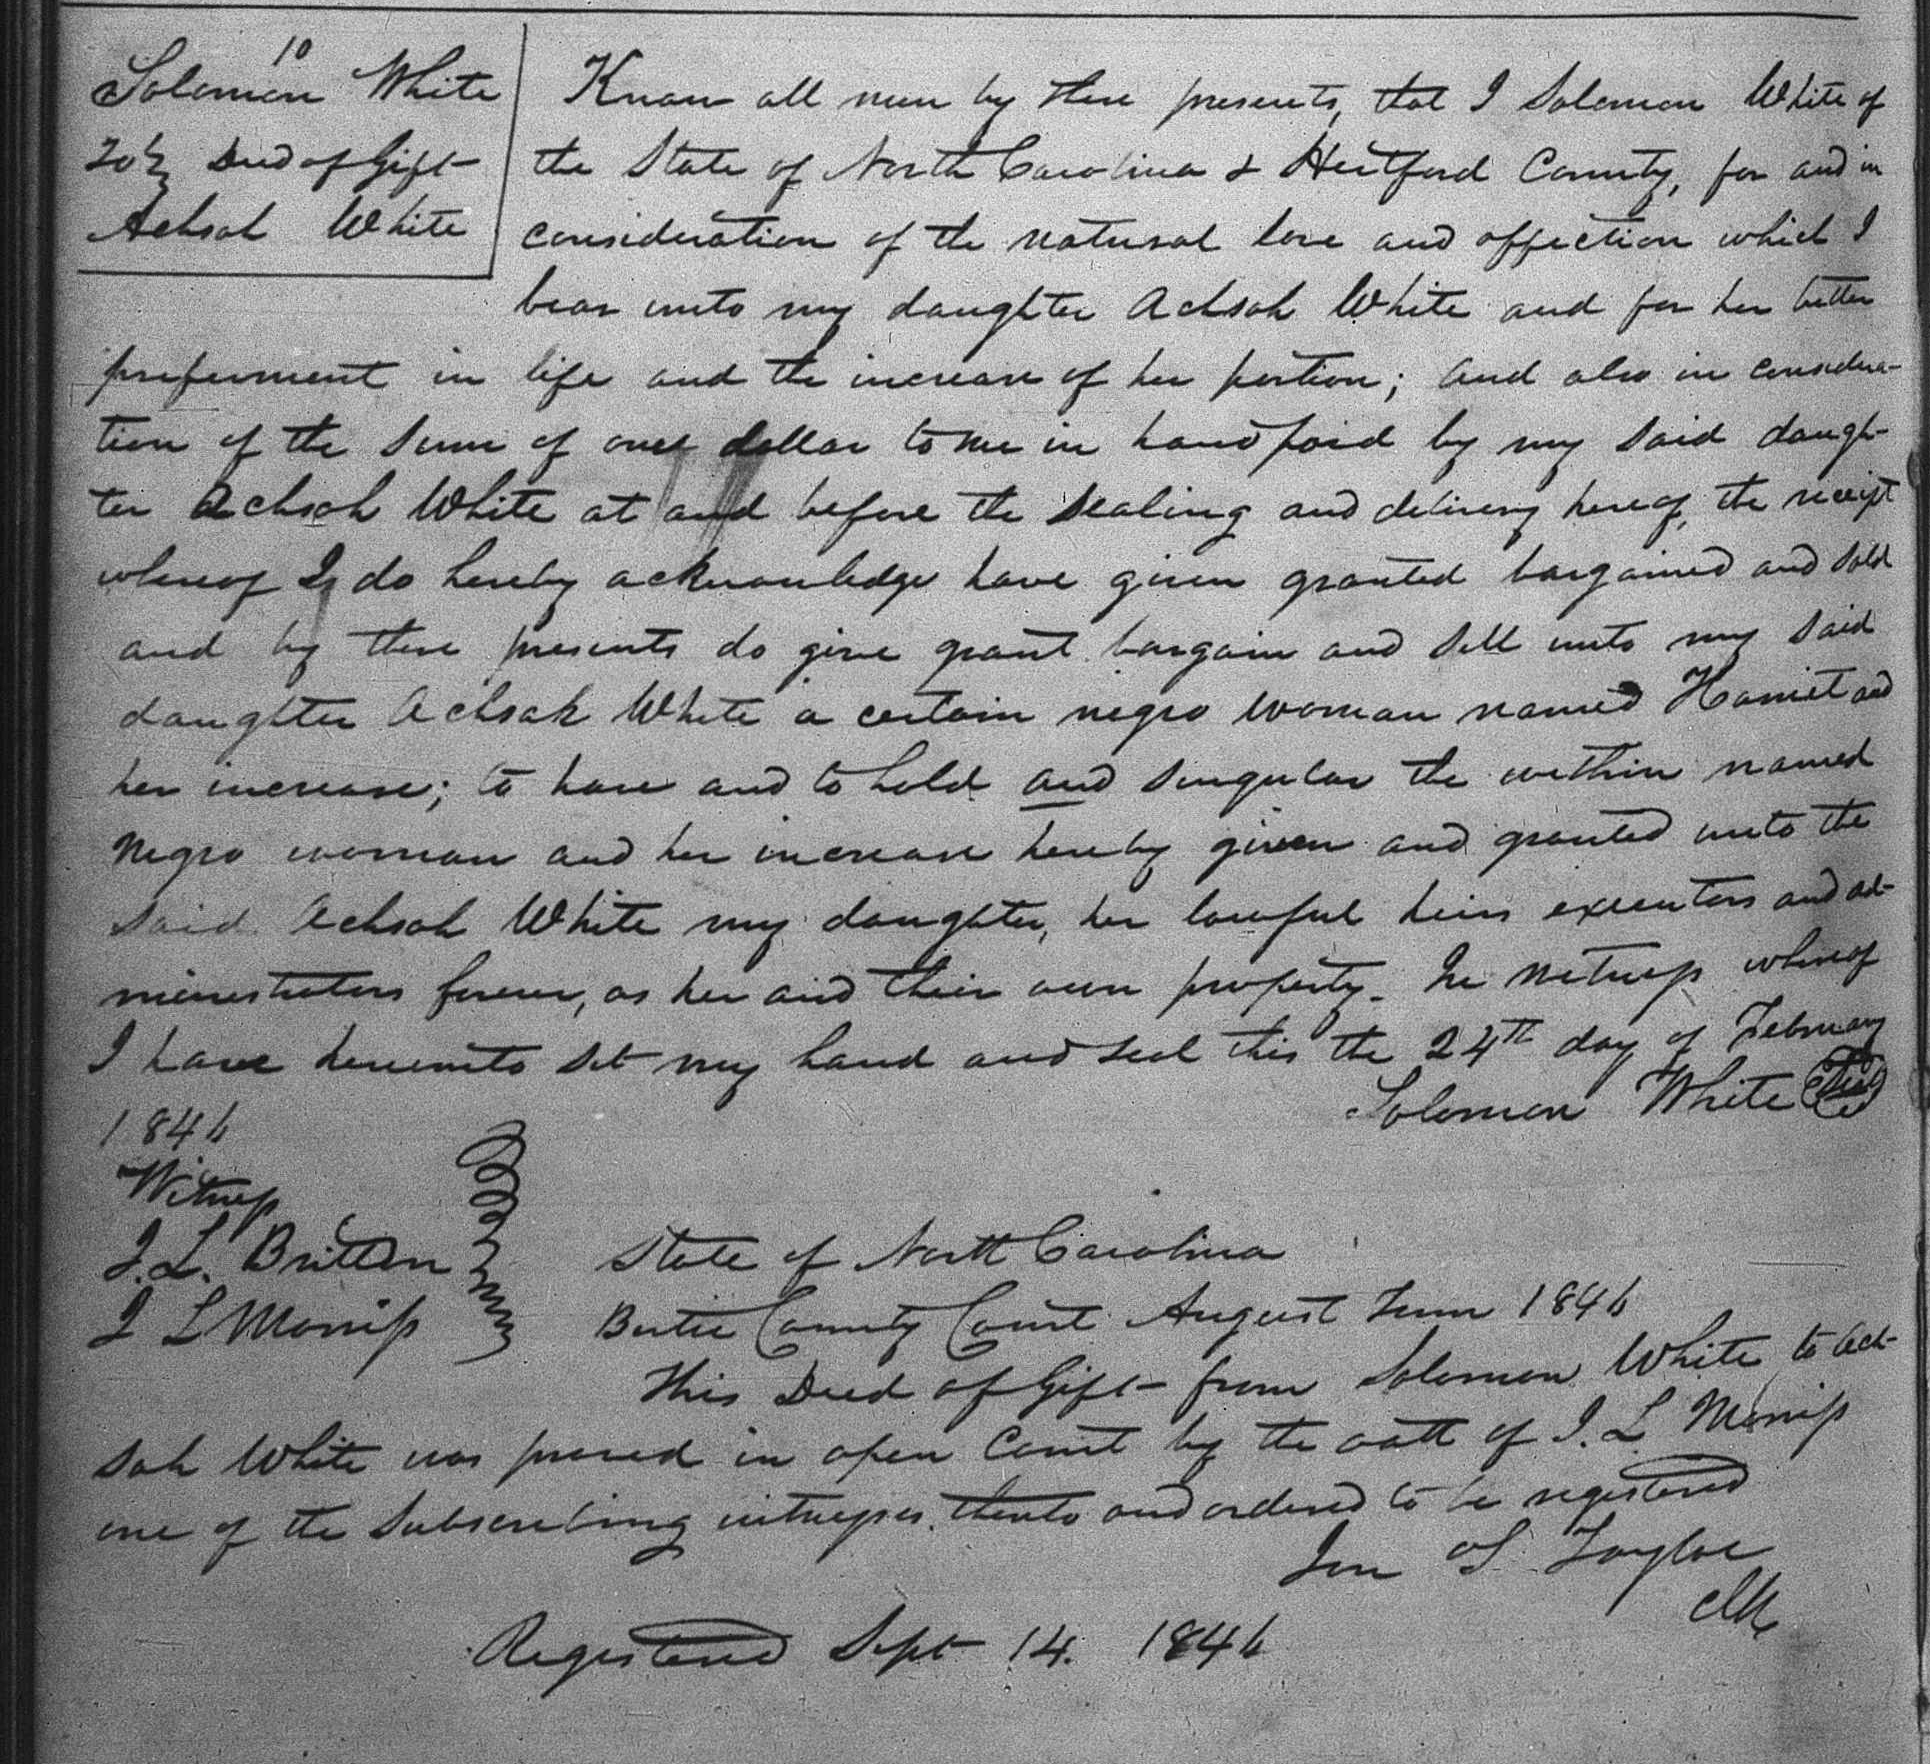 Solomon White
10
To Deed of Gift
Achsah White
Know all men by these presents, that I Solomon White of
the State of North Carolina & Hertford County, for and in
consideration of the natural love and affection which I
bear unto my daughter Achsah White and for her better
preferment in life and the increase of her portion; and also in considera-
tion of the sum of one dollar to me in hand paid by my said daugh-
ter Achsah White at and before the sealing and delivery hereof, the receipt
whereof I do hereby acknowledge have given granted bargained and sold
and by these presents do give grant bargain and sell unto my said
daughter Achsah White a certain negro woman named Harriet and
her increase; to have and to hold and singular the within named
negro woman and her increase hereby given and granted unto the
said Achsah White my daughter, her lawful heirs executors and ad-
ministrators forever, as her and their own property. In witness whereof
I have hereunto set my hand and seal this the 24th day of February
1846
Solomon White (Seal)
Witness
J. L. Britton
J L Morriss
State of North Carolina
Bertie County Court August Term 1846
This Deed of Gift from Solomon White to Ach-
sah White was proved in open Court by the oath of J. L Morriss
one of the subscribing witnesses thereto and ordered to be registered
Jon S. Tayloe
Clk
Registered Sept 14. 1846